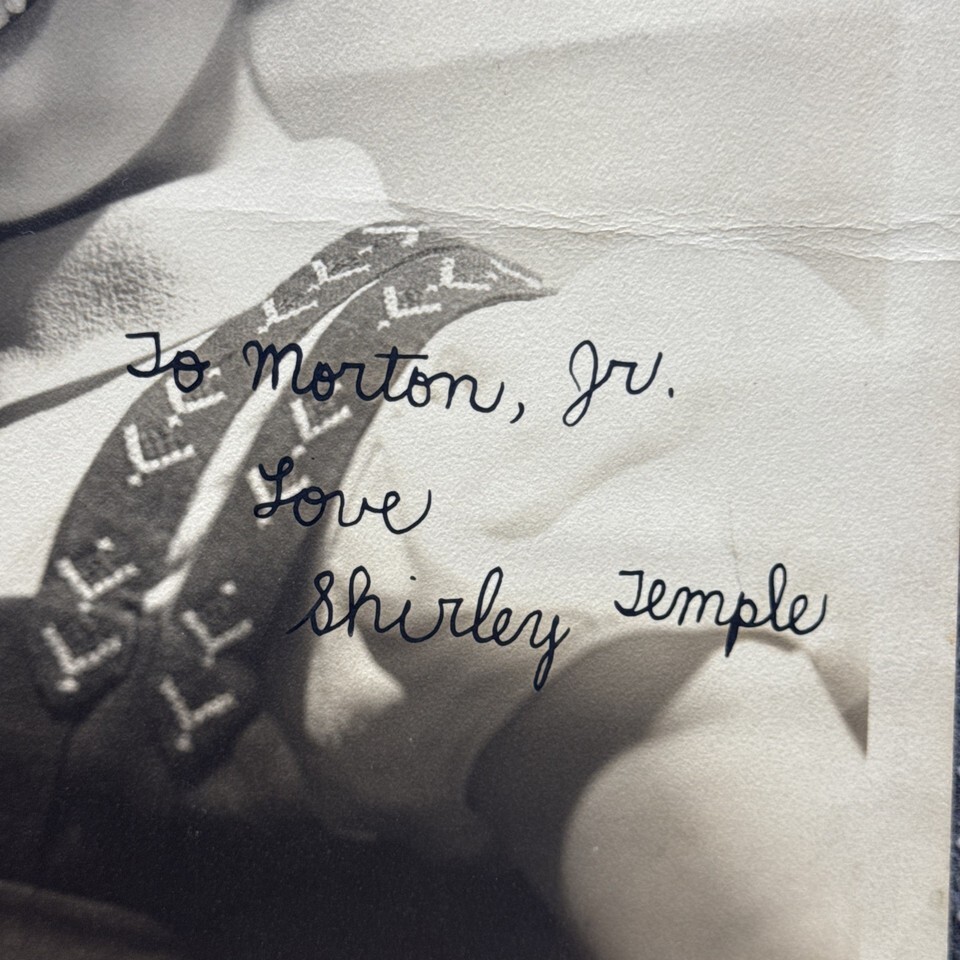 To Morton, Jr.
Love
Shirley Temple